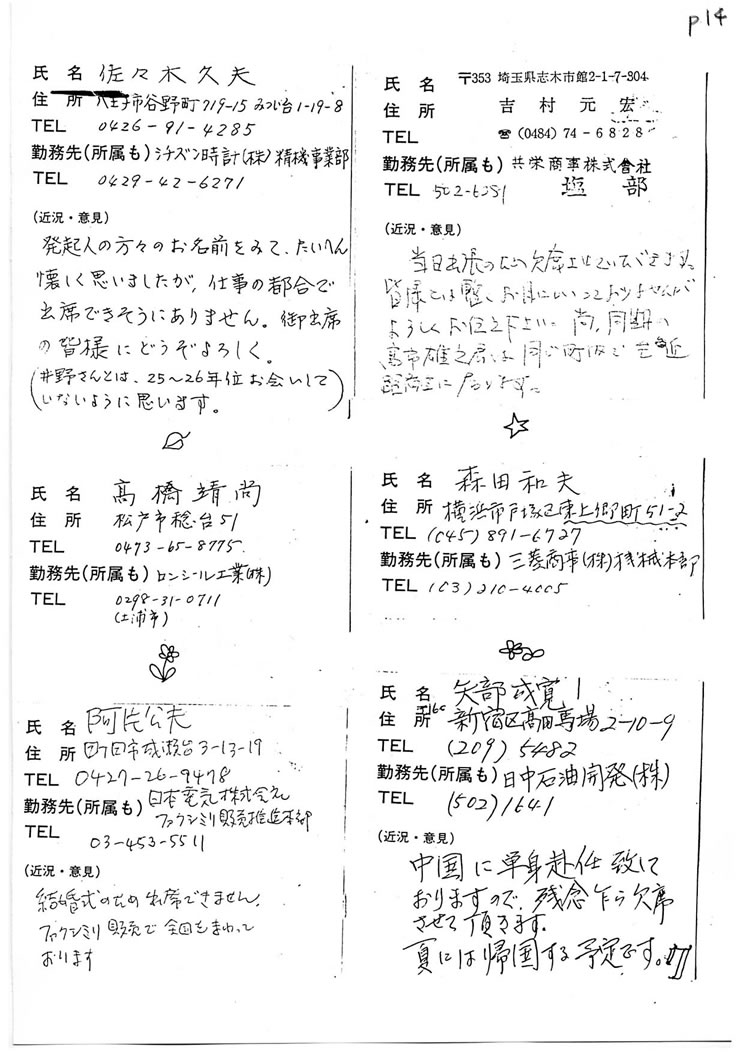 p14
氏 名 佐々木久夫
住 所 八王子市谷野町719-15 みつい台1-19-8
TEL 0426-91-4285
勤務先(所属も) シチズン時計(株)精機事業部
TEL 0429-42-6271
(近況・意見)
発起人の方々のお名前をみて、たいへん
懐しく思いましたが、仕事の都合で
出席できそうにありません。御出席
の皆様にどうぞよろしく。
(井野さんとは、25~26年位お会いして
いないように思います。)
氏 名 〒353 埼玉県志木市館2-1-7-304
住 所 吉村元宏
TEL ☎(0484)74-6828
勤務先(所属も) 共栄商事株式会社
TEL 502-6351 塩部
(近況・意見)
当日出張のため欠席
皆様とは暫くお目にかかっておりませんが
よろしくお伝え下さい 尚、同期の
高市雄之 同じ町内で 至近
距離に 居ります。
氏 名 高橋靖尚
住 所 松戸市稔台51
TEL 0473-65-8775
勤務先(所属も) ロンシール工業(株)
TEL 0298-31-0711
(土浦市)
氏 名 森田和夫
住 所 横浜市戸塚区東上郷町51-2
TEL (045)891-6727
勤務先(所属も) 三菱商事(株)機械本部
TEL (03)210-4005
氏 名 阿片公夫
住 所 町田市成瀬台3-13-19
TEL 0427-26-9478
勤務先(所属も) 日本電気株式会社
ファクシミリ販売推進本部
TEL 03-453-5511
(近況・意見)
結婚式のため出席できません。
ファクシミリ販売で全国をまわって
おります
氏 名 矢部成寛
住 所 新宿区高田馬場2-10-9
TEL (209)5482
勤務先(所属も) 日中石油開発(株)
TEL (502)1641
(近況・意見)
中国に単身赴任致して
おりますので、残念乍ら欠席
させて頂きます。
夏には帰国する予定です。